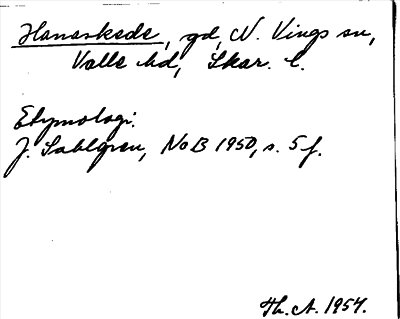 Hanaskede, gd, N. Vings sn,
Valle hd, Skar. l.
Etymologi:
J. Sahlgren, NoB 1950, s. 5 f.
Th. A. 1957.